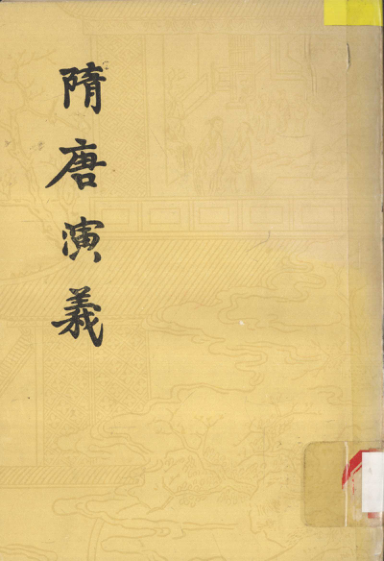 隋唐演義